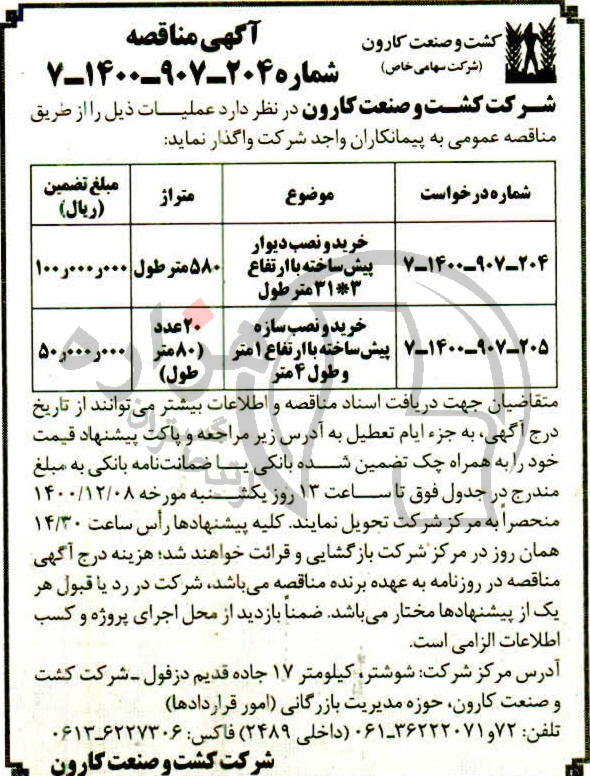 کشت و صنعت کارون
(شرکت سهامی خاص)
آگهی مناقصه
شماره ۲۰۴_۹۰۷_۱۴۰۰_۷
شرکت کشت و صنعت کارون در نظر دارد عملیات ذیل را از طریق
مناقصه عمومی به پیمانکاران واجد شرکت واگذار نماید:
شماره درخواست
موضوع
متراژ
مبلغ تضمین
(ریال)
۲۰۴_۹۰۷_۱۴۰۰_۷
خرید و نصب دیوار
پیش ساخته با ارتفاع
۳*۳۱ متر طول
۵۸۰ متر طول
۱۰۰٫۰۰۰٫۰۰۰
۲۰۵_۹۰۷_۱۴۰۰_۷
خرید و نصب سازه
پیش ساخته با ارتفاع ۱ متر
و طول ۴ متر
۲۰ عدد
(۸۰ متر
طول)
۵۰٫۰۰۰٫۰۰۰
متقاضیان جهت دریافت اسناد مناقصه و اطلاعات بیشتر می‌توانند از تاریخ
درج آگهی، به جزء ایام تعطیل به آدرس زیر مراجعه و پاکت پیشنهاد قیمت
خود را به همراه چک تضمین شده بانکی یا ضمانت‌نامه بانکی به مبلغ
مندرج در جدول فوق تا ساعت ۱۳ روز یکشنبه مورخه ۱۴۰۰/۱۲/۰۸
منحصراً به مرکز شرکت تحویل نمایند. کلیه پیشنهادها رأس ساعت ۱۴/۳۰
همان روز در مرکز شرکت بازگشایی و قرائت خواهند شد؛ هزینه درج آگهی
مناقصه در روزنامه به عهده برنده مناقصه می‌باشد، شرکت در رد یا قبول هر
یک از پیشنهادها مختار می‌باشد. ضمناً بازدید از محل اجرای پروژه و کسب
اطلاعات الزامی است.
آدرس مرکز شرکت: شوشتر، کیلومتر ۱۷ جاده قدیم دزفول _ شرکت کشت
و صنعت کارون، حوزه مدیریت بازرگانی (امور قراردادها)
تلفن: ۷۲ و ۳۶۲۲۲۰۷۱_۰۶۱ (داخلی ۲۴۸۹) فاکس: ۶۲۲۷۳۰۶_۰۶۱۳
شرکت کشت و صنعت کارون